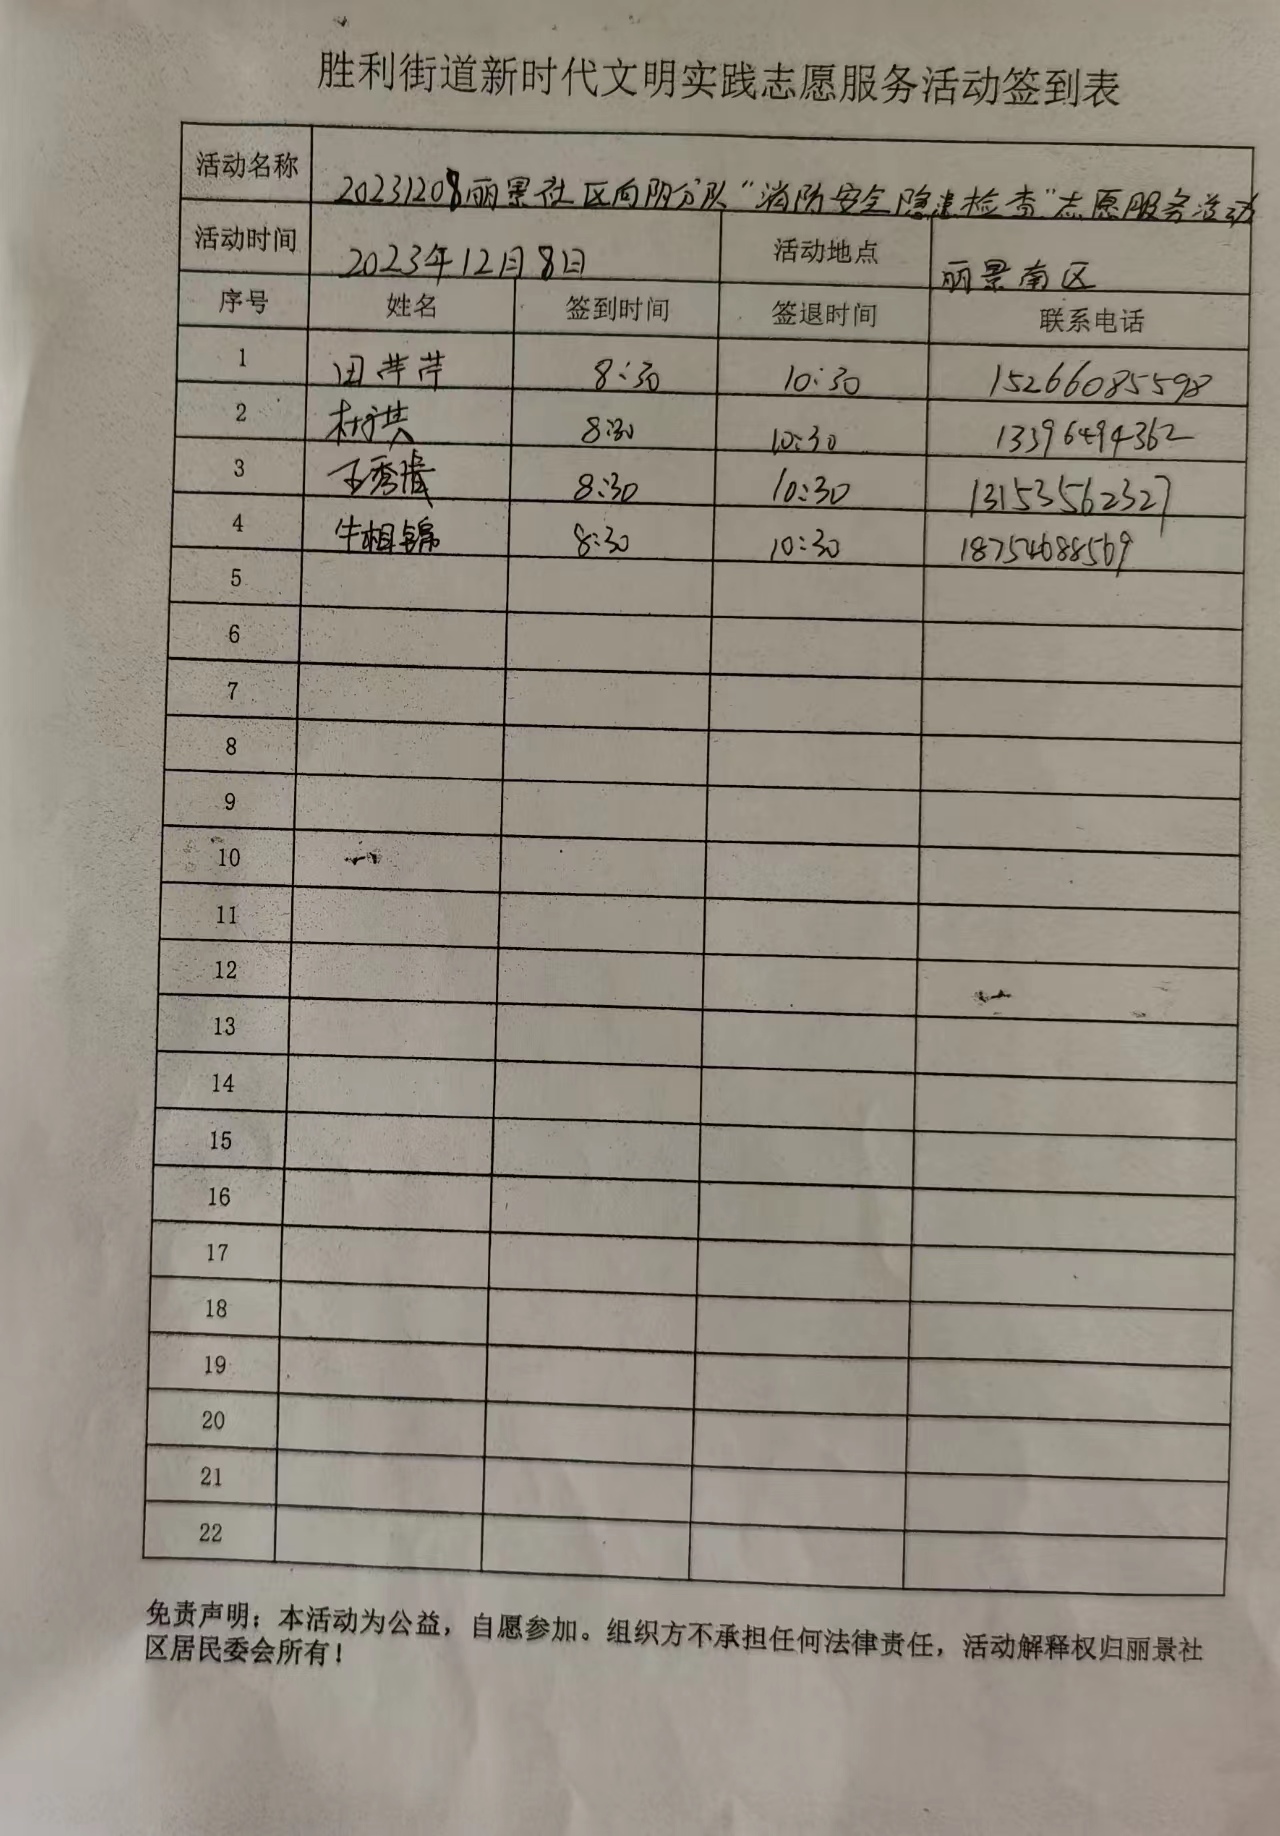 胜利街道新时代文明实践志愿服务活动签到表
活动名称 20231208丽景社区向阳分队“消防安全隐患检查”志愿服务活动
活动时间 2023年12月8日 活动地点 丽景南区
序号 姓名 签到时间 签退时间 联系电话
1 田芹芹 8:30 10:30 15266085598
2 8:30 10:30 13396494362
3 王秀 8:30 10:30 13153562327
4 牛相锦 8:30 10:30 18754688569
5
6
7
8
9
10
11
12
13
14
15
16
17
18
19
20
21
22
免责声明：本活动为公益，自愿参加。组织方不承担任何法律责任，活动解释权归丽景社
区居民委会所有！